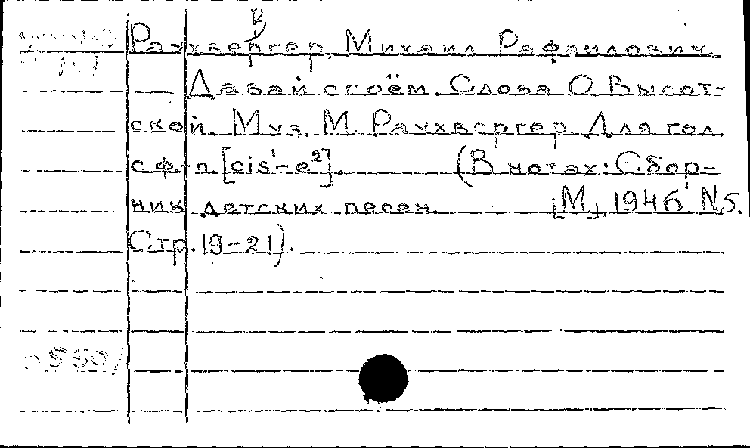 Раухвергер, Михаил Рафаилович.
Давай споём. Слова О. Высот-
ской. Муз. М. Раухвергер. Для гол.
с ф-п. [cis¹-e²]. (В нотах: Сбор-
ник детских песен. [М], 1946. N5.
Стр. 19-21).